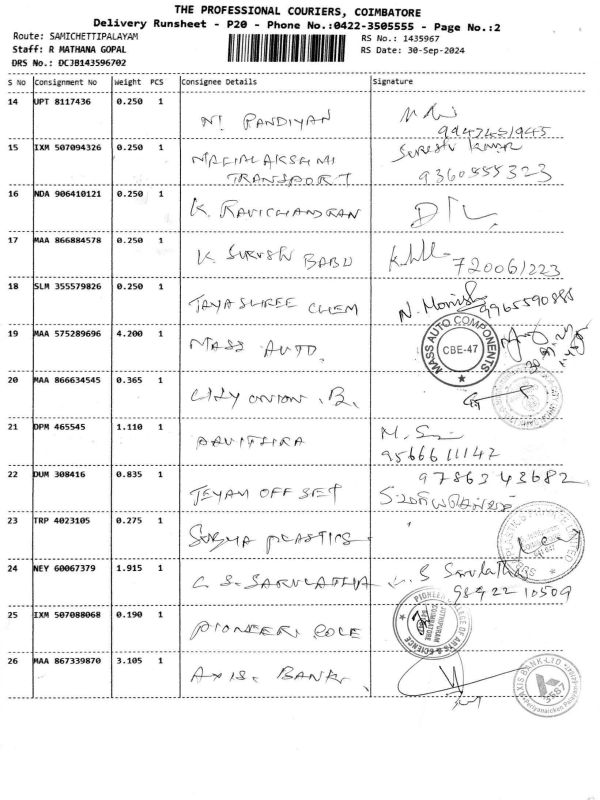 THE PROFESSIONAL COURIERS, COIMBATORE
Delivery Runsheet - P20 - Phone No.:0422-3505555 - Page No.:2
Route: SAMICHETTIPALAYAM
RS No.: 1435967
Staff: R MATHANA GOPAL
RS Date: 30-Sep-2024
DRS No.: DCJB143596702
S No Consignment No Weight PCS Consignee Details Signature
14 UPT 8117436 0.250 1 N. PANDIYAN
15 IXM 507094326 0.250 1 MAHALAKSHMI Suresh Kumar
TRANSPORT 9360555323
16 NDA 906410121 0.250 1 K. RAVICHANDRAN
17 MAA 866884578 0.250 1 K SURESH BABU 720061223
18 SLM 355579826 0.250 1 JAYASHREE CHEM N. Monish 9965590885
19 MAA 575289696 4.200 1 MASS AUTO. MASS AUTO COMPONENTS CBE-47
20 MAA 866634545 0.365 1 CITY UNION . B.
21 DPM 465545 1.110 1 PAVITHRA M. S
9566611142
22 DUM 308416 0.835 1 JEYAM OFFSET 9786343682
23 TRP 4023105 0.275 1 SURYA PLASTICS
24 NEY 60067379 1.915 1 C. S. SARULATHA C. S Sarulatha
9842210509
25 IXM 507088068 0.190 1 PIONEER COLE PIONEER COLLEGE OF ARTS & SCIENCE
JOTHIPURAM COIMBATORE
26 MAA 867339870 3.105 1 AXIS. BANK AXIS BANK LTD
Periyanaicken Palayam